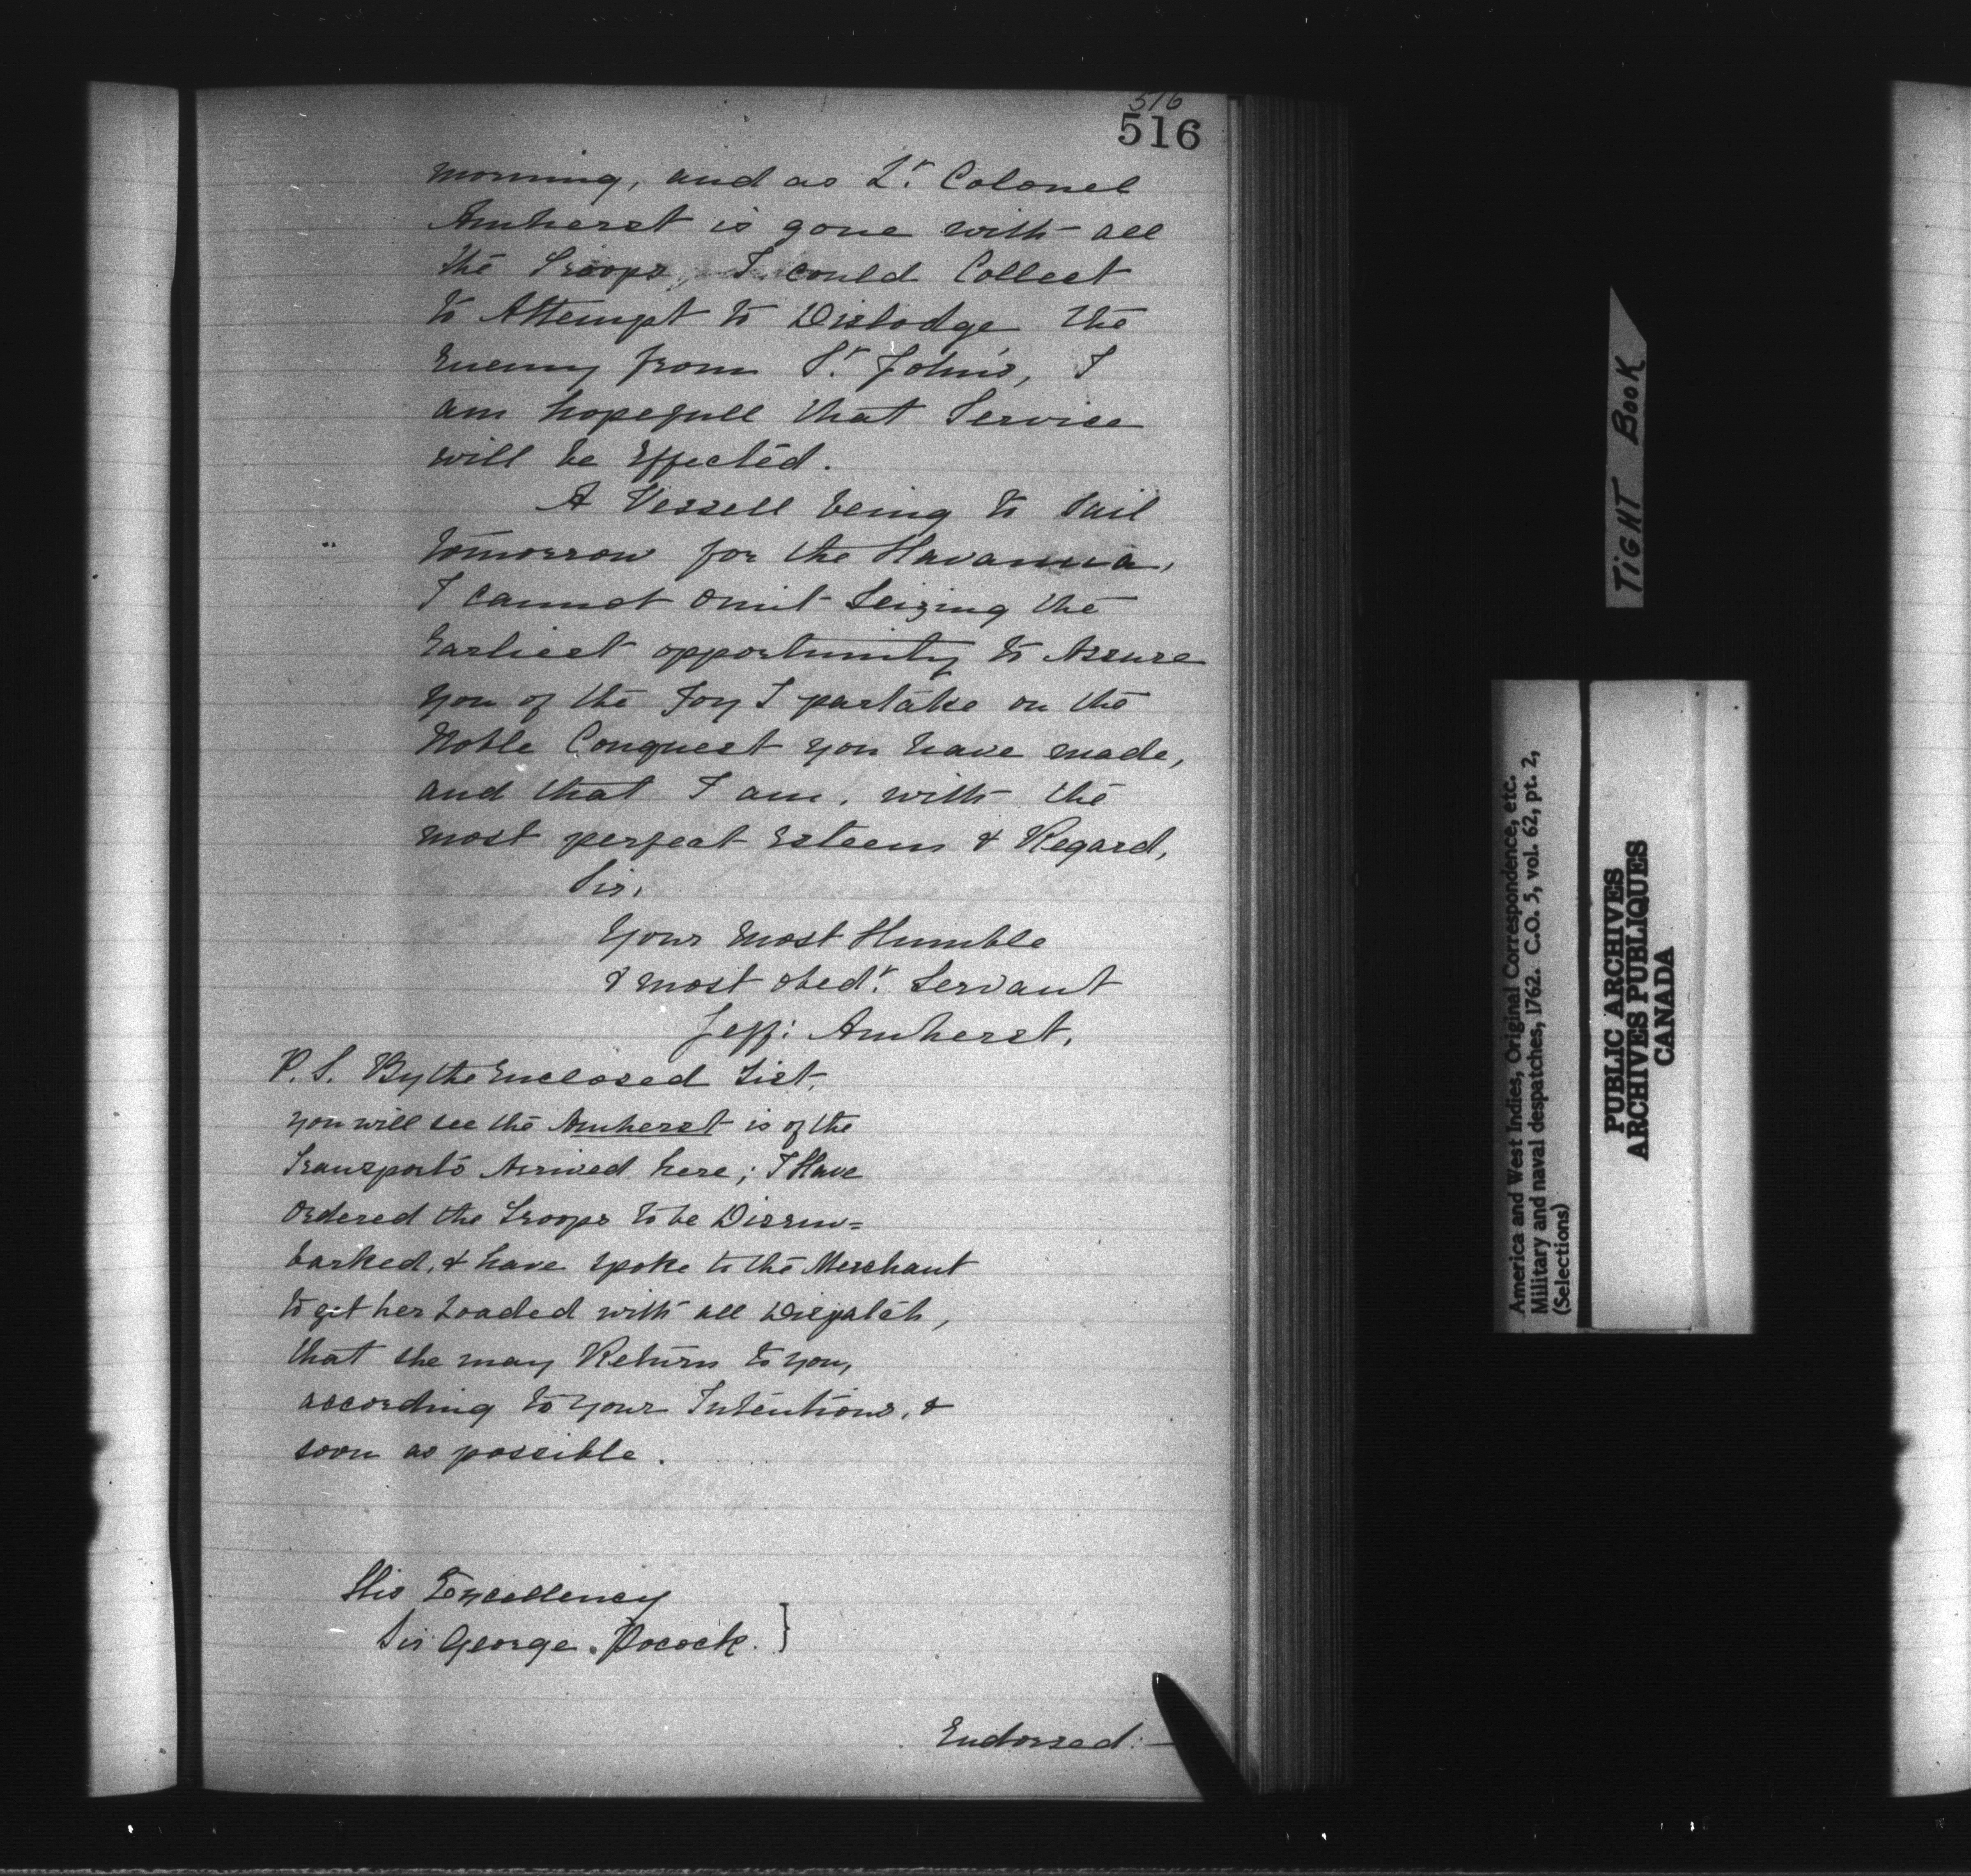 516
516
morning, and as Lt. Colonel
Amherst is gone with all
the Troops, I could Collect
to Attempt to Dislodge the
Enemy from St. John's, I
am hopefull that Service
will be Effected.
A Vessell being to Sail
tomorrow for the Havanna,
I cannot omit Seizing the
Earliest opportunity to Assure
you of the Joy I partake on the
Noble Conquest you have made,
and that I am, with the
most perfect Esteem & Regard,
Sir,
Your most Humble
& most obedt. Servant
Jeff: Amherst.
P.S. By the Enclosed List,
you will see the Amherst is of the
Transports Arrived here; I Have
ordered the Troops to be Disem=
barked, & have spoke to the Merchant
to get her Loaded with all Dispatch,
that she may Return to you,
according to your Intentions, &
soon as possible.
His Excellency
Sir George Pocock. }
Endorsed:—
TIGHT BOOK
America and West Indies, Original Correspondence, etc.
Military and naval despatches, 1762. C.O. 5, vol. 62, pt. 2,
(Selections)
PUBLIC ARCHIVES
ARCHIVES PUBLIQUES
CANADA